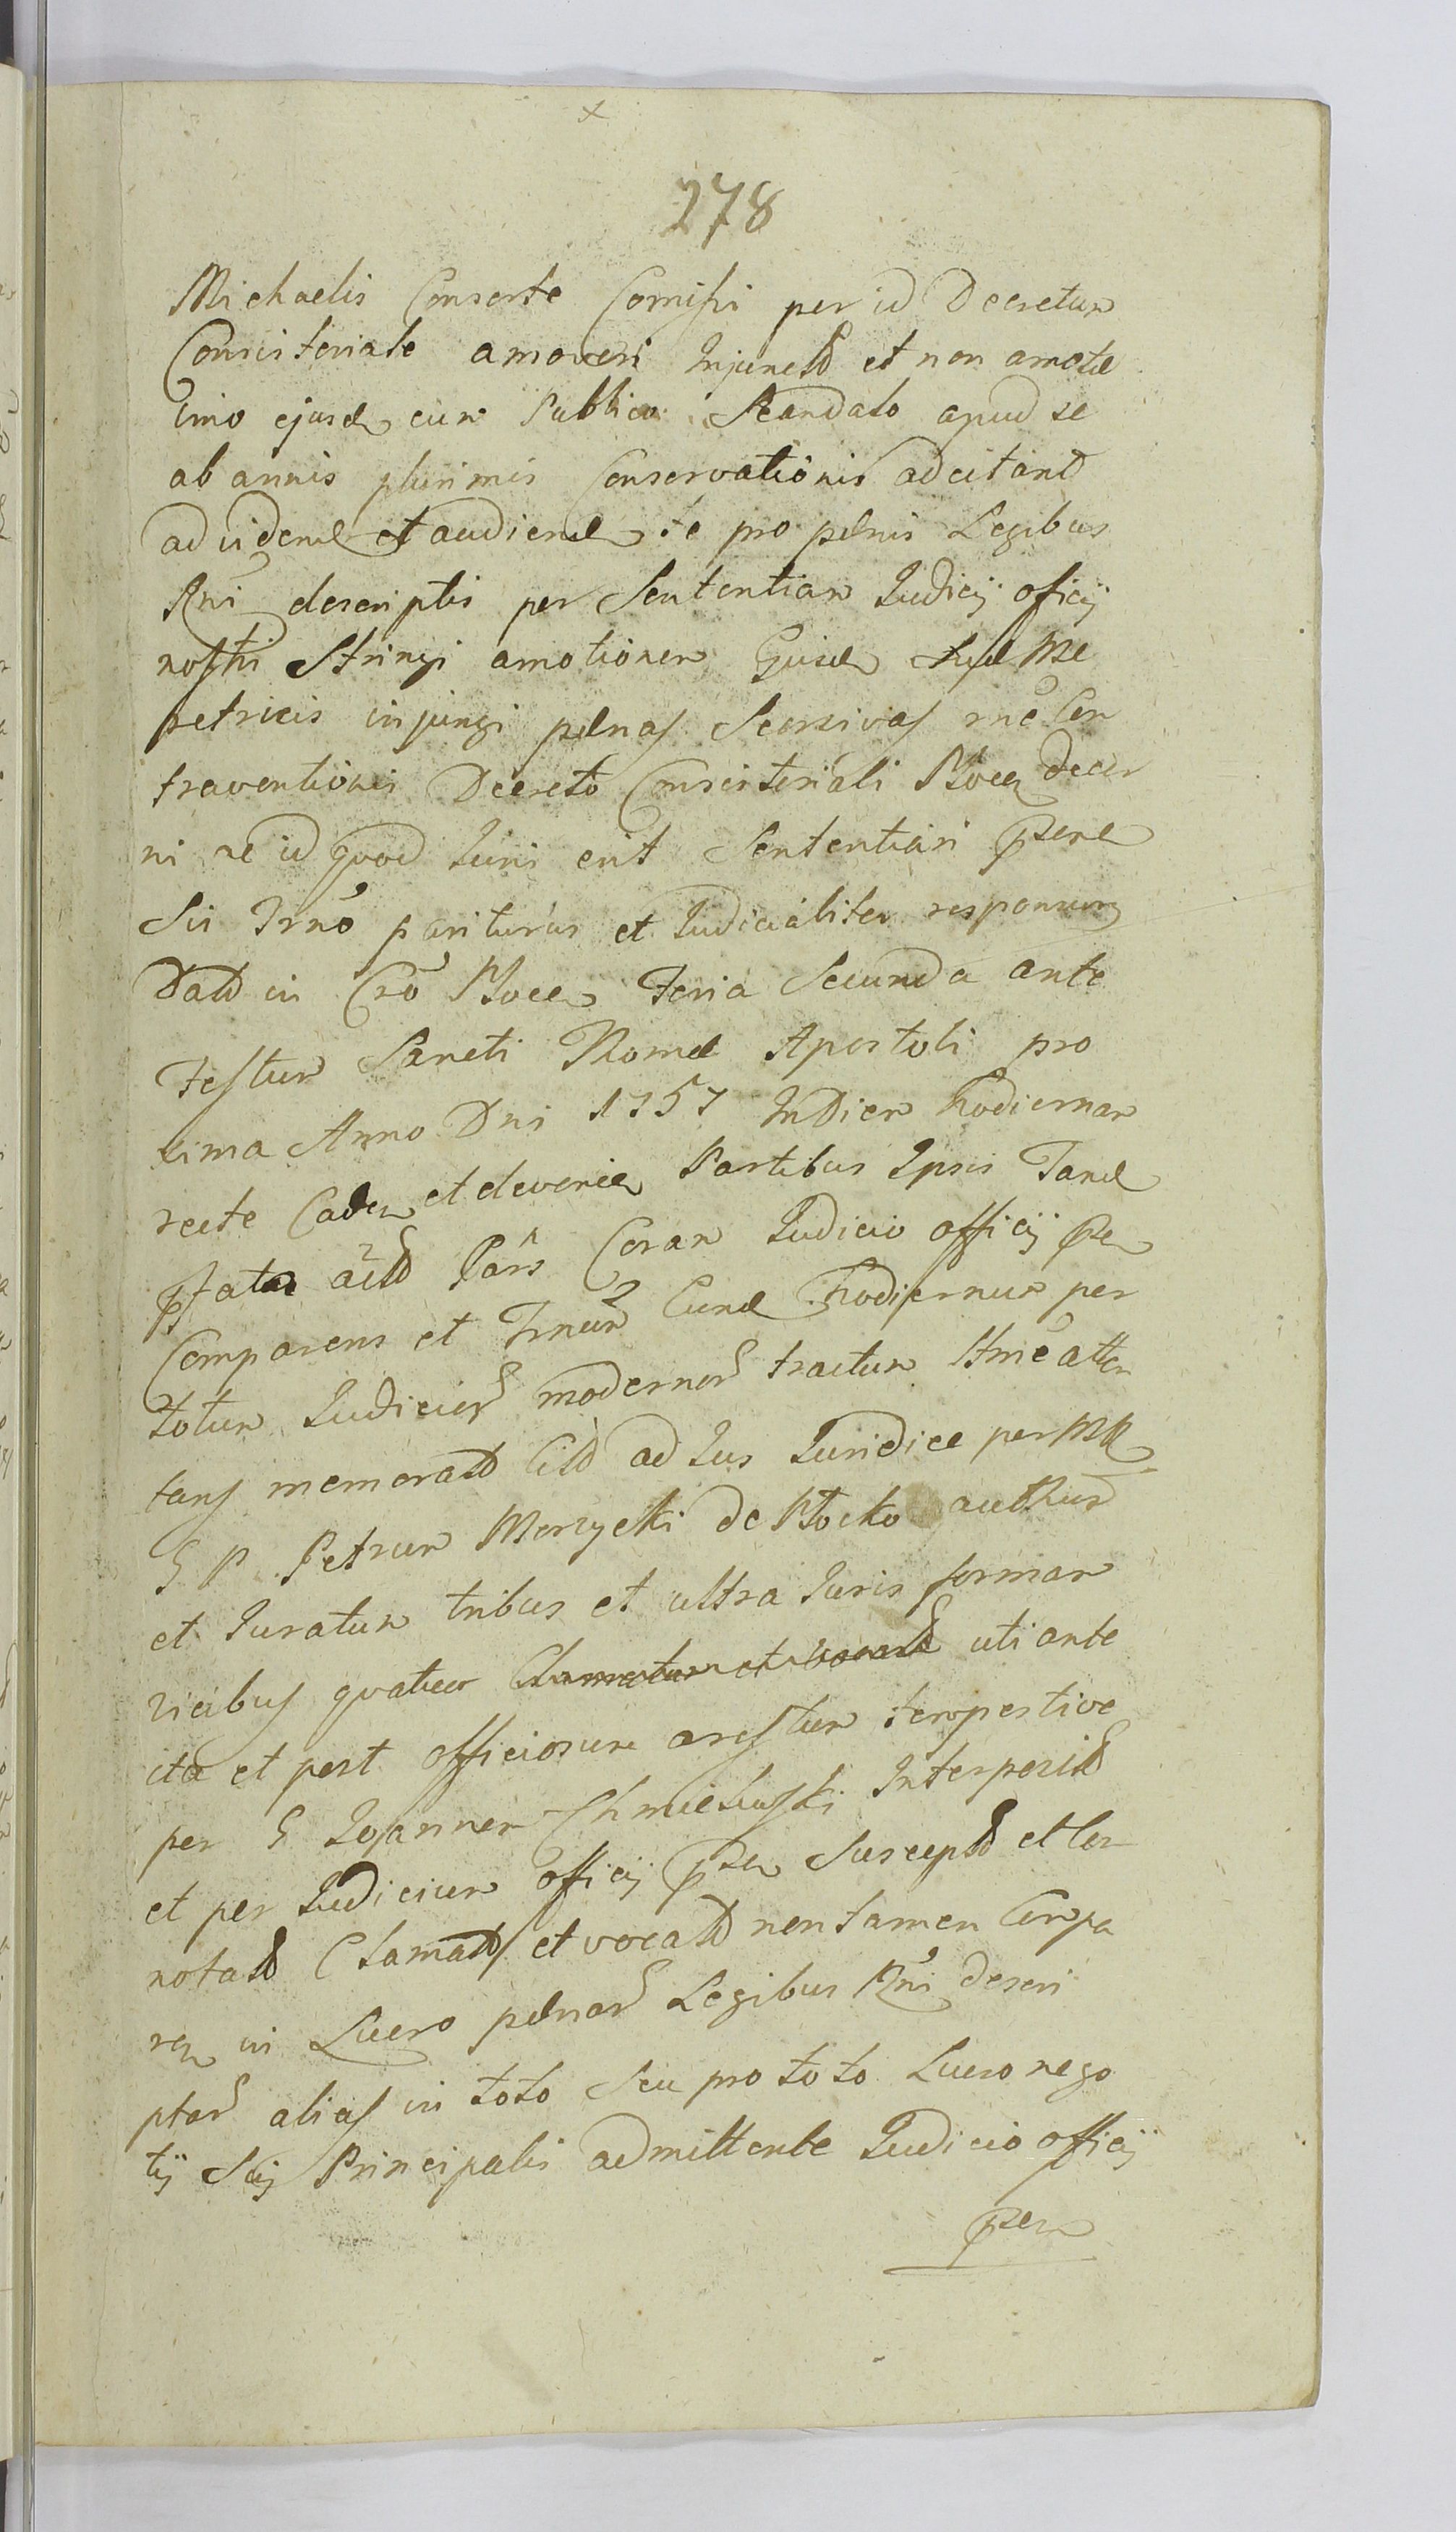 278
Michaelis Consorte Comissi per id Decretum
Consistoriale amoveri Injunctae et non amotae
imo ejusdem cum Publico Scandalo apud se
ab annis plurimis Conservationis adcitant
ad vidend et audiend se pro paenis Legibus
Rni descriptis per Sententiam Judicij officij
nostri Stringi amotionem Ejusd Me
retricis injungi paenas Seorsivas rne Con
traventionis Decreto Consistoriali Plocen decer
ni ac id quod Juris erit Sententiari
Sis Trno pariturus et Judicialiter responsurus
Datt in Cro Plocen Feria Secunda ante
Festum Sancti Thomae Apostoli pro
xima Anno Dni 1757 In Diem hodiernam
recte Caden et devenien Partibus Ipsis Tand
pfata Pars Coram Judicio officij psen
Comparens et Trnum Eund hodiernum per
totum Judicior modernor tractum atten
tans memorat Citt ad Jus Juridice per
G P Petrum de Plocko
et Juratum tribus et ultra Juris formam
vicibus quatuor uti ante
ita et post officiosum arestum tempestive
per G Joannem Chmielewski Interposit
et per Judicium officij psen Suscept et Con
notatt Clamatt et vocatt non tamen Compa
ren in Lucro paenar Legibus Rni descri
ptar alias in toto seu pro toto Lucro nego
tij Sui Principalis admittente Judicio officij
psen